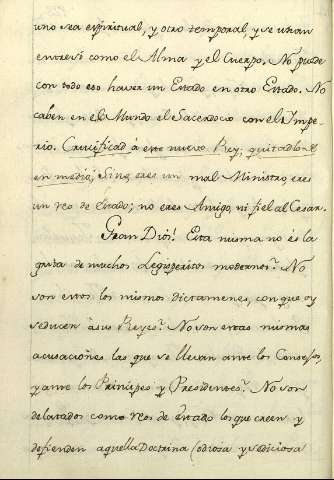 uno sea espiritual, y otro temporal, y se unan
entre si como el Alma y el Cuerpo. No puede
con todo eso haver un Estado en otro Estado. No
caben en el Mundo el Sacerdocio con el Impe-
rio. Crucificad à este nuevo Rey; quitadlo de
en medio; Sino, eres un mal Ministro, eres
un reo de Estado; no eres Amigo, ni fiel al Cesar.
Gran Dios! Esta misma no és la
grita de muchos Legisperitos modernos? No
son estos los mismos dictamenes, con que oy
seducen à sus Reyes? No son estas mismas
acusaciones las que se llevan ante los Consejos,
y ante los Principes y Presidentes? No son
delatados como reos de estado los que creen y
defienden aquella Doctrina (odiosa y sediciosa